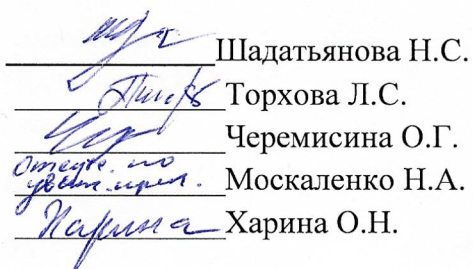 Шадатьянова Н.С.
Торхова Л.С.
Черемисина О.Г.
Отсутс. по
уваж. прич. Москаленко Н.А.
Харина Харина О.Н.